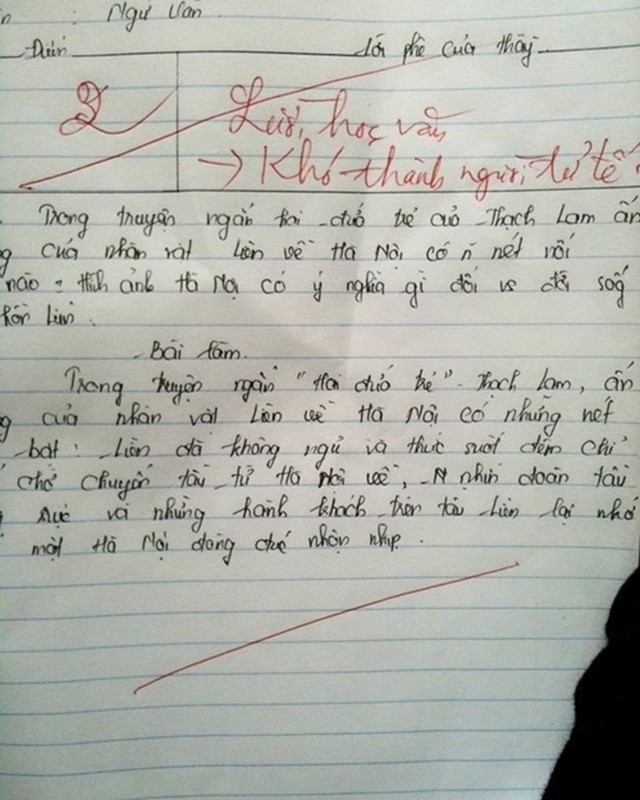 : Ngữ Văn
Điểm Lời phê của thầy
2 Lười học văn
→ Khó thành người tử tế.
Trong truyện ngắn hai đứa trẻ của Thạch Lam ấn
g của nhân vật Liên về Hà Nội có n nét nổi
nào. Hình ảnh Hà Nội có ý nghĩa gì đối vs đời sốg
hồn Liên.
Bài làm.
Trong truyện ngắn "Hai đứa trẻ" - Thạch Lam, ấn
g của nhân vật Liên về Hà Nội có những nét
bật: Liên đã không ngủ và thức suốt đêm chỉ
chờ chuyến tàu từ Hà Nội về, nhìn đoàn tàu
rực và những hành khách trên tàu Liên lại nhớ
một Hà Nội đông đúc nhộn nhịp.